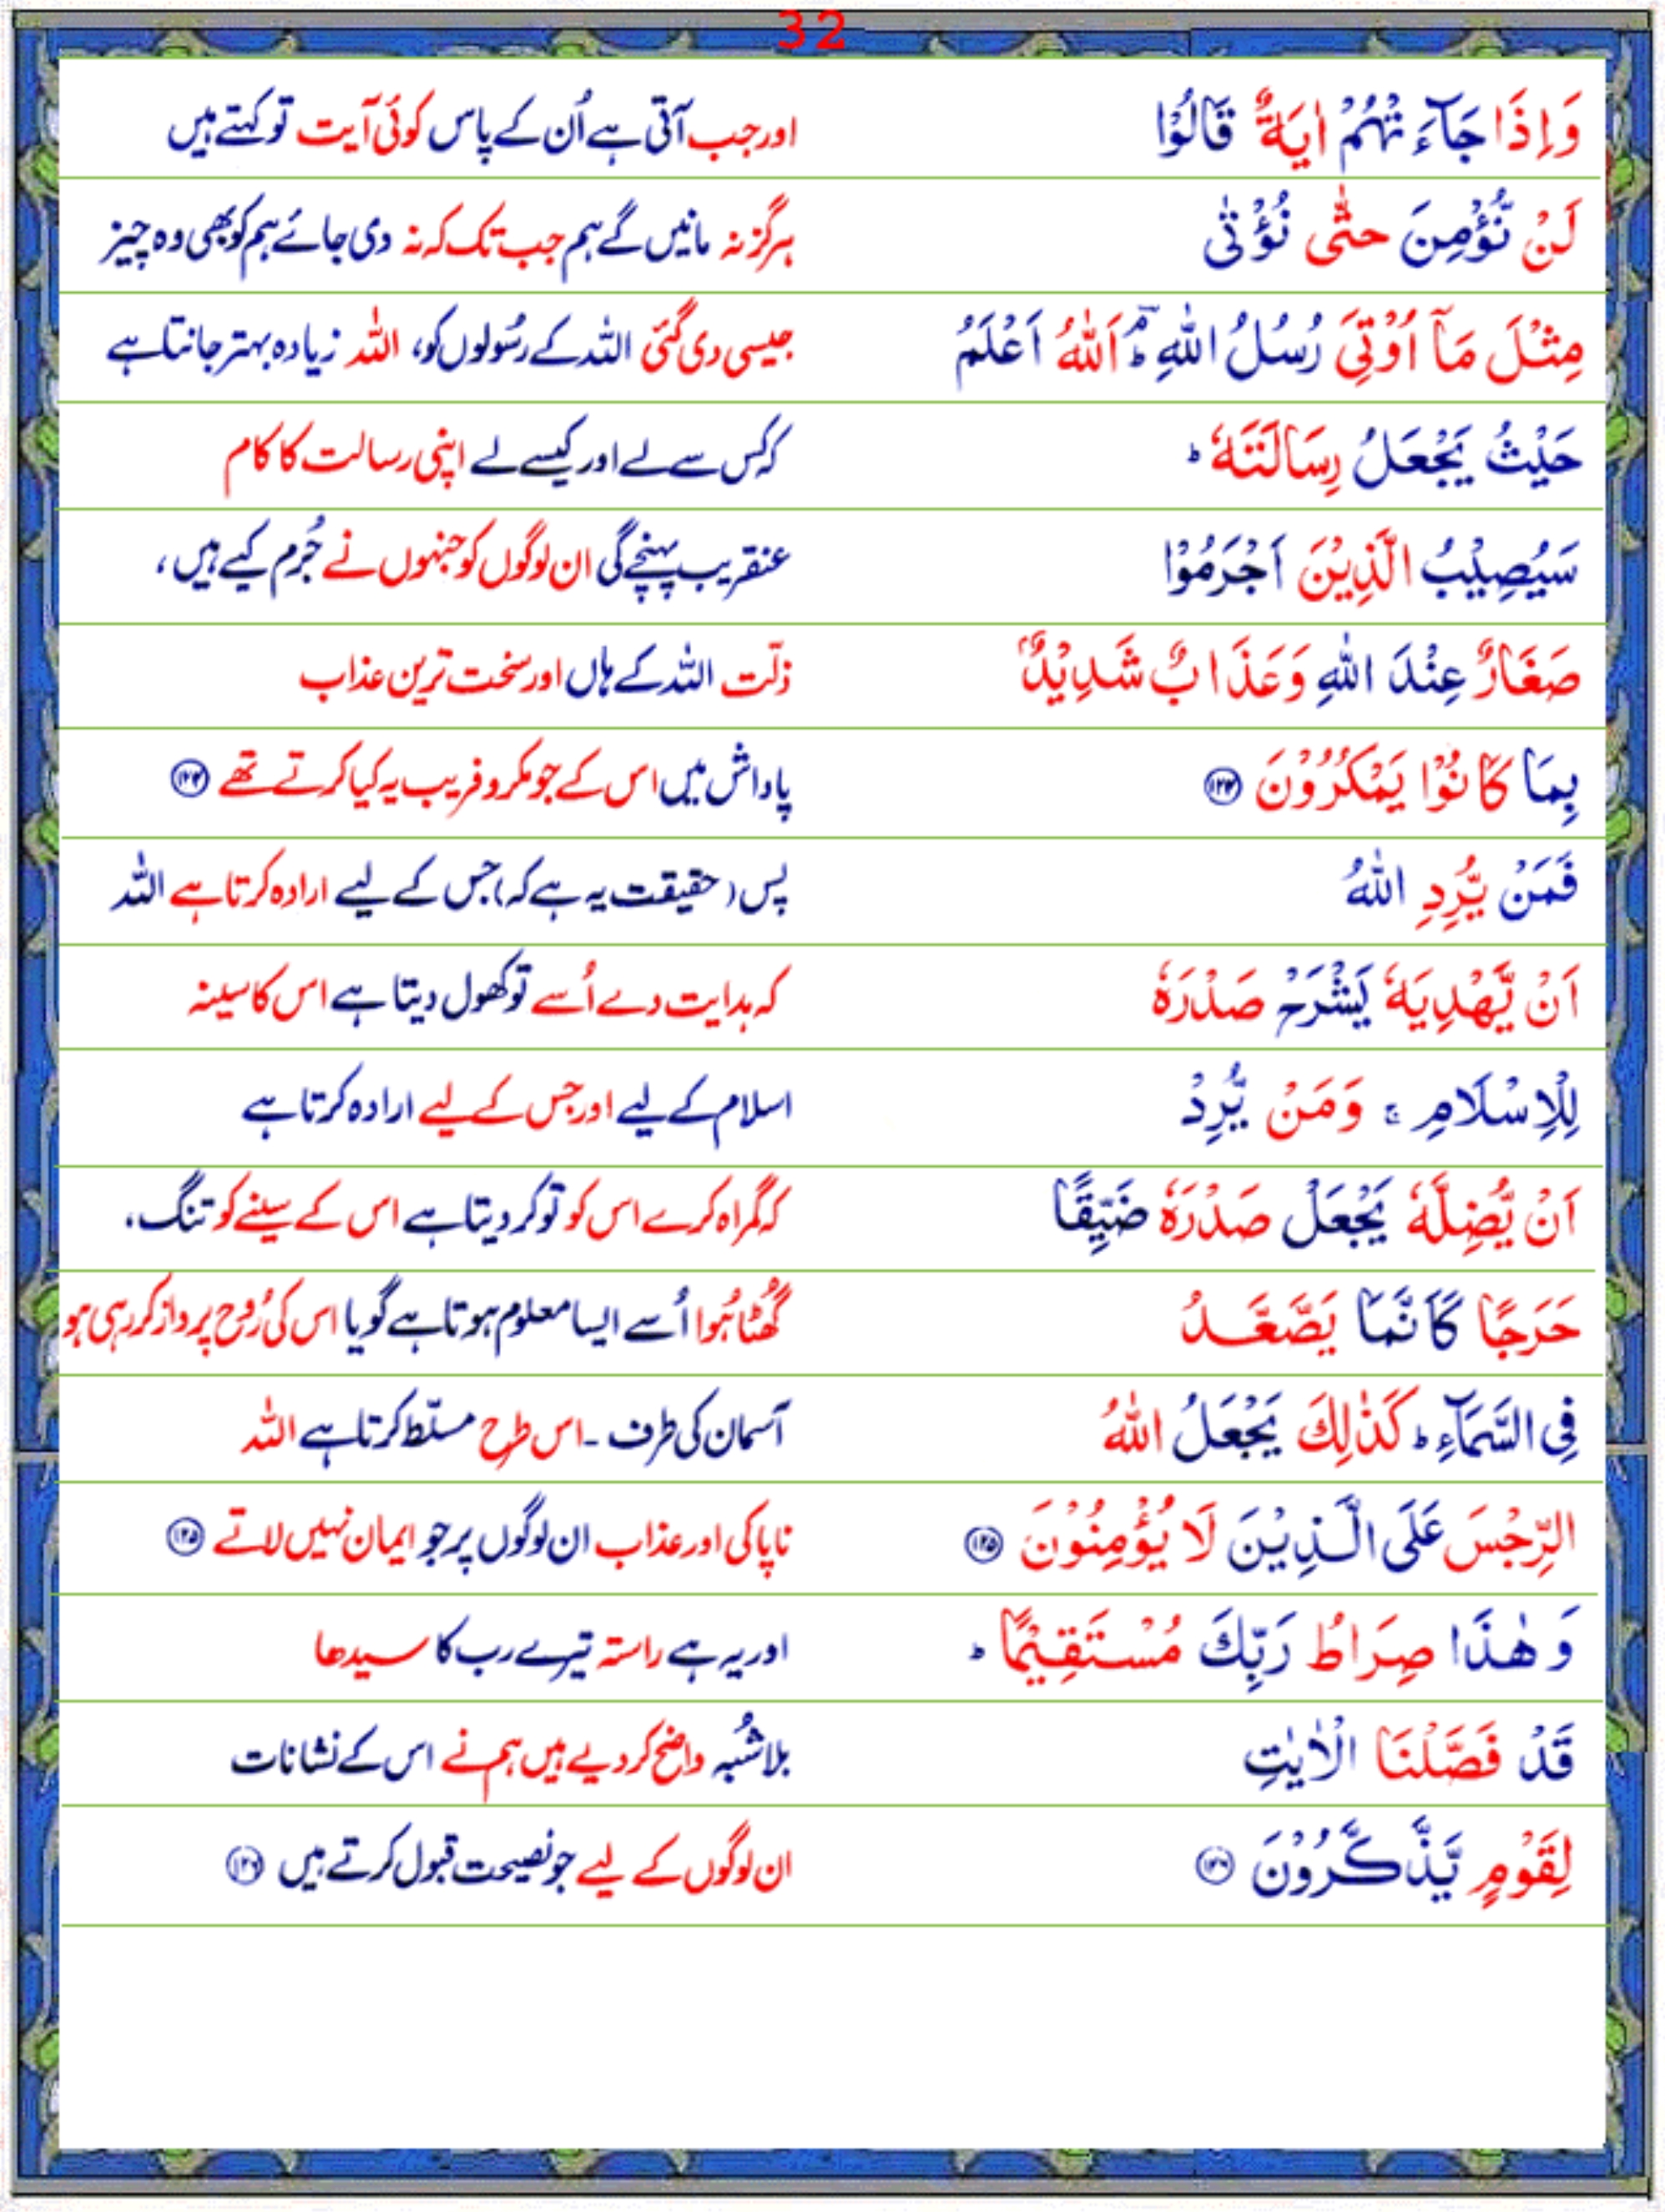 32
وَاِذَا جَآءَتْهُمْ اٰيَةٌ قَالُوْا اور جب آتی ہے اُن کے پاس کوئی آیت تو کہتے ہیں
لَنْ نُّؤْمِنَ حَتّٰى نُؤْتٰى ہرگز نہ مانیں گے ہم جب تک کہ نہ دی جائے ہم کو بھی وہ چیز
مِثْلَ مَاۤ اُوْتِيَ رُسُلُ اللّٰهِ ؔۘؕ اَللّٰهُ اَعْلَمُ جیسی دی گئی اللہ کے رسُولوں کو، اللہ زیادہ بہتر جانتا ہے
حَيْثُ يَجْعَلُ رِسَالَتَهٗ ؕ کہ کس سے لے اور کیسے لے اپنی رسالت کا کام
سَيُصِيْبُ الَّذِيْنَ اَجْرَمُوْا عنقریب پہنچے گی ان لوگوں کو جنہوں نے جُرم کیے ہیں،
صَغَارٌ عِنْدَ اللّٰهِ وَعَذَابٌ شَدِيْدٌۢ ذلّت اللہ کے ہاں اور سخت ترین عذاب
بِمَا كَانُوْا يَمْكُرُوْنَ ﴿۱۲۴﴾ پاداش میں اس کے جو مکر و فریب یہ کیا کرتے تھے ﴿۱۲۴﴾
فَمَنْ يُّرِدِ اللّٰهُ پس (حقیقت یہ ہے کہ) جس کے لیے ارادہ کرتا ہے اللہ
اَنْ يَّهْدِيَهٗ يَشْرَحْ صَدْرَهٗ کہ ہدایت دے اُسے تو کھول دیتا ہے اس کا سینہ
لِلْاِسْلَامِ ۚ وَمَنْ يُّرِدْ اسلام کے لیے اور جس کے لیے ارادہ کرتا ہے
اَنْ يُّضِلَّهٗ يَجْعَلْ صَدْرَهٗ ضَيِّقًا کہ گمراہ کرے اس کو تو کر دیتا ہے اس کے سینے کو تنگ،
حَرَجًا كَاَنَّمَا يَصَّعَّدُ گھُٹا ہُوا اُسے ایسا معلوم ہوتا ہے گویا اس کی رُوح پرواز کر رہی ہو
فِى السَّمَآءِ ؕ كَذٰلِكَ يَجْعَلُ اللّٰهُ آسمان کی طرف ۔ اس طرح مسلّط کرتا ہے اللہ
الرِّجْسَ عَلَى الَّذِيْنَ لَا يُؤْمِنُوْنَ ﴿۱۲۵﴾ ناپاکی اور عذاب ان لوگوں پر جو ایمان نہیں لاتے ﴿۱۲۵﴾
وَهٰذَا صِرَاطُ رَبِّكَ مُسْتَقِيْمًا ؕ اور یہ ہے راستہ تیرے رب کا سیدھا
قَدْ فَصَّلْنَا الْاٰيٰتِ بلاشُبہ واضح کر دیے ہیں ہم نے اس کے نشانات
لِقَوْمٍ يَّذَّكَّرُوْنَ ﴿۱۲۶﴾ ان لوگوں کے لیے جو نصیحت قبول کرتے ہیں ﴿۱۲۶﴾